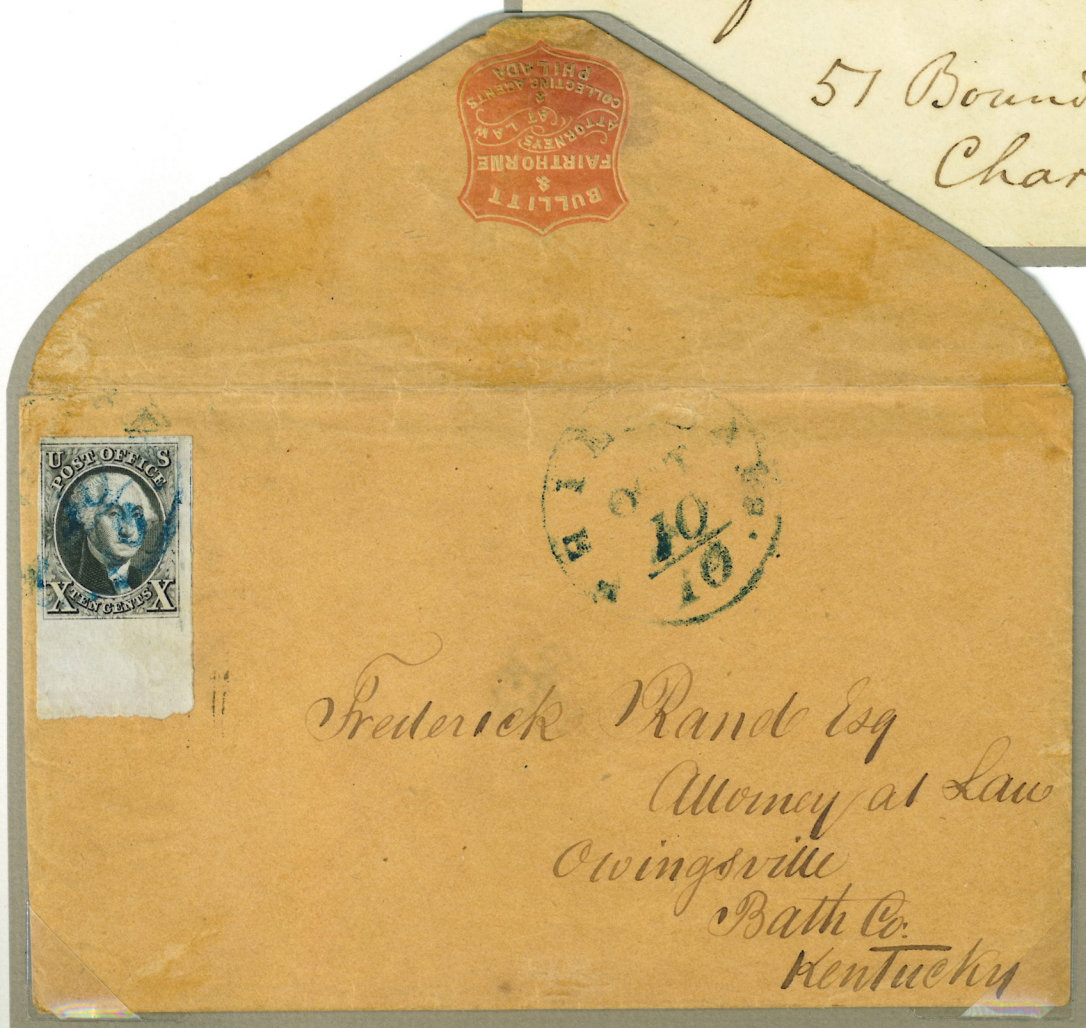 51
BULLITT
&
FAIRTHORNE
ATTORNEYS AT LAW
&
COLLECTING AGENTS
PHILADA
U S
POST OFFICE
X TEN CENTS X
OCT
10
10
Frederick Rand Esq
Attorney at Law
Owingsville
Bath Co.
Kentucky